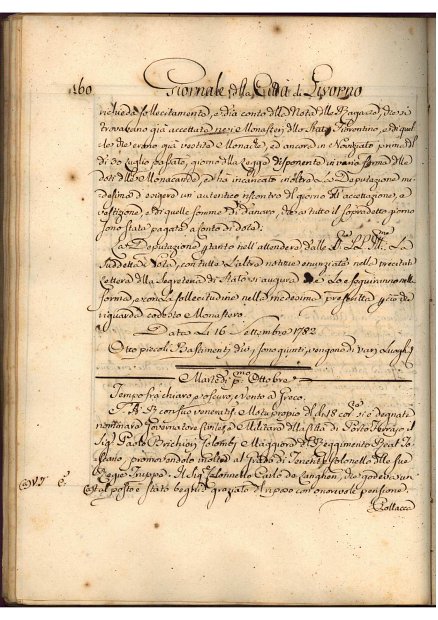 160 Giornale della Città di Livorno
richieda sollecitamente, e dia conto della Nota delle Ragazze, che si
trovavano già accettate nei Monasteri dello Stato Fiorentino, e di quel-
le che erano già vestite Monache, ed ancora in Noviziato prima del
dì 30 Luglio passato, giorno della Legge disponente in varia forma delle
doti delle Monacande, ed ha incaricato inoltre la Deputazione me-
desima d'esigere un autentico riscontro del giorno dell'accettazione, e
vestizione, e di quelle somme di danaro, che a tutto il sopradetto giorno
sono state pagate a conto di dote.
La Deputazione pertanto nell'attendere dalle La
suddetta Nota, con tutte l'altre notizie enunziate nella precitata
Lettera della Segreteria di Stato si augura che Lo eseguiranno nella
forma, e con la sollecitudine nella medesima prescritta per ciò che
riguarda codesto Monastero.
Data Li 16 Settembre 1782
Otto piccoli Bastimenti che sono giunti, vengono di varj Luoghi
Martedì p.mo Ottobre
Tempo frà chiaro, e oscuro, e vento a Greco.
S. A. R. con suo venerato Motuproprio del dì 18 cor.te si è degnata
nominare Governatore Civile, e Militare della Città di Porto Ferrajo il
Sig. Paolo Maggiore del Reggimento Real To-
scano, promovendolo inoltre al Grado di Tenente Colonnello delle sue
Regie Truppe. Il Sig. Colonnello Carlo de che godeva un
tal posto è stato graziato del riposo con onorevole pensione.
Collacca